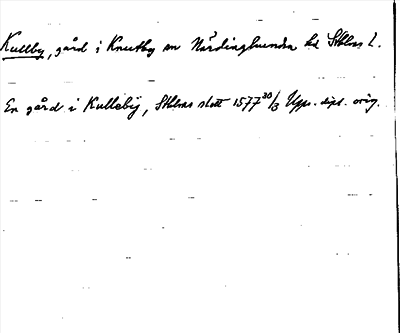 Kullby, gård i Knutby sn Närdinghundra hd Sthlms l.
En gård i Kulleby, Sthlms slott 1577 30/3 Upps. dipl. orig.